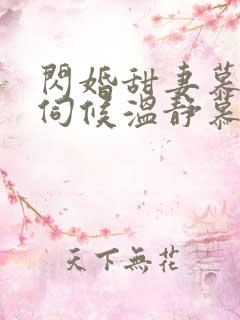 閃婚甜妻慕
伺候溫靜慕
天下無花